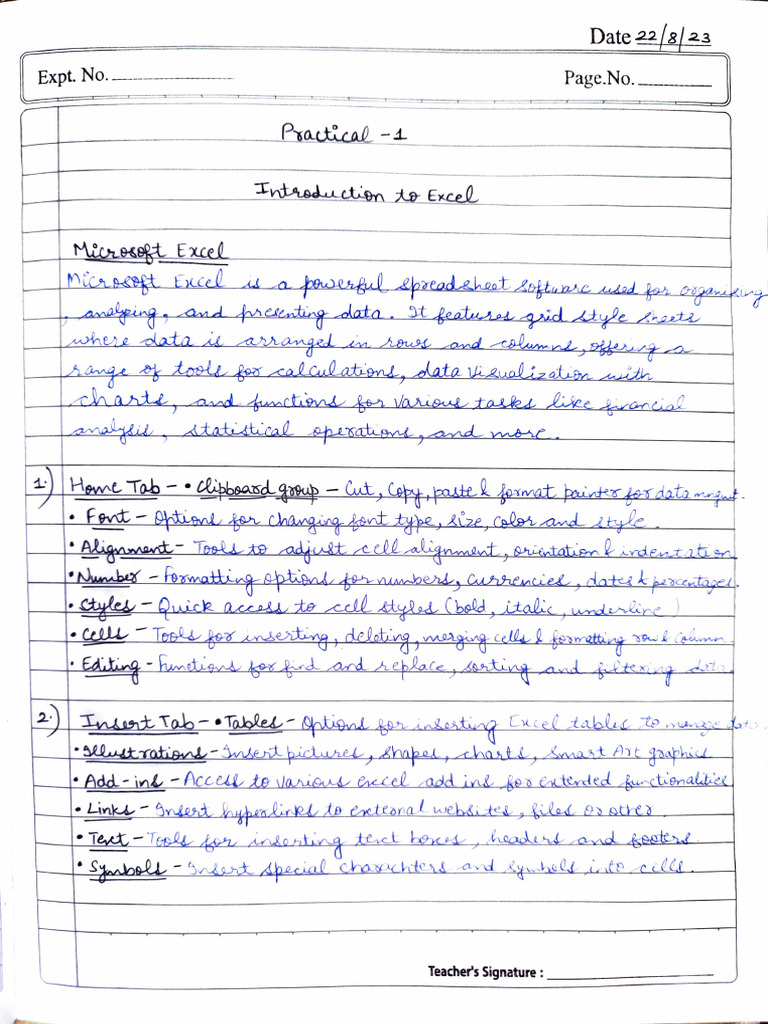 Date 22/8/23
Expt. No.
Page.No.
Practical - 1
Introduction to Excel
Microsoft Excel
Microsoft Excel is a powerful spreadsheet software used for organising
, analysing, and presenting data. It features grid style sheets
where data is arranged in rows and columns, offering a
range of tools for calculations, data visualization with
charts, and functions for various tasks like financial
analysis, statistical operations, and more.
1.) Home Tab - • Clipboard group - Cut, Copy, paste & format painter for data mngmt.
• Font - Options for changing font type, size, color and style.
• Alignment - Tools to adjust cell alignment, orientation & indentation
• Number - Formatting options for numbers, currencies, dates & percentages.
• Styles - Quick access to cell styles (bold, italic, underline)
• Cells - Tools for inserting, deleting, merging cells & formatting row & column.
• Editing - Functions for find and replace, sorting and filtering data
2.) Insert Tab - • Tables - Options for inserting Excel tables to manage data.
• Illustrations - Insert pictures, shapes, charts, Smart Art graphics
• Add-ins - Access to various excel add ins for extended functionalities
• Links - Insert hyperlinks to external websites, files or other.
• Text - Tools for inserting text boxes, headers and footers
• Symbols - Insert special charachters and symbols into cells.
Teacher's Signature :